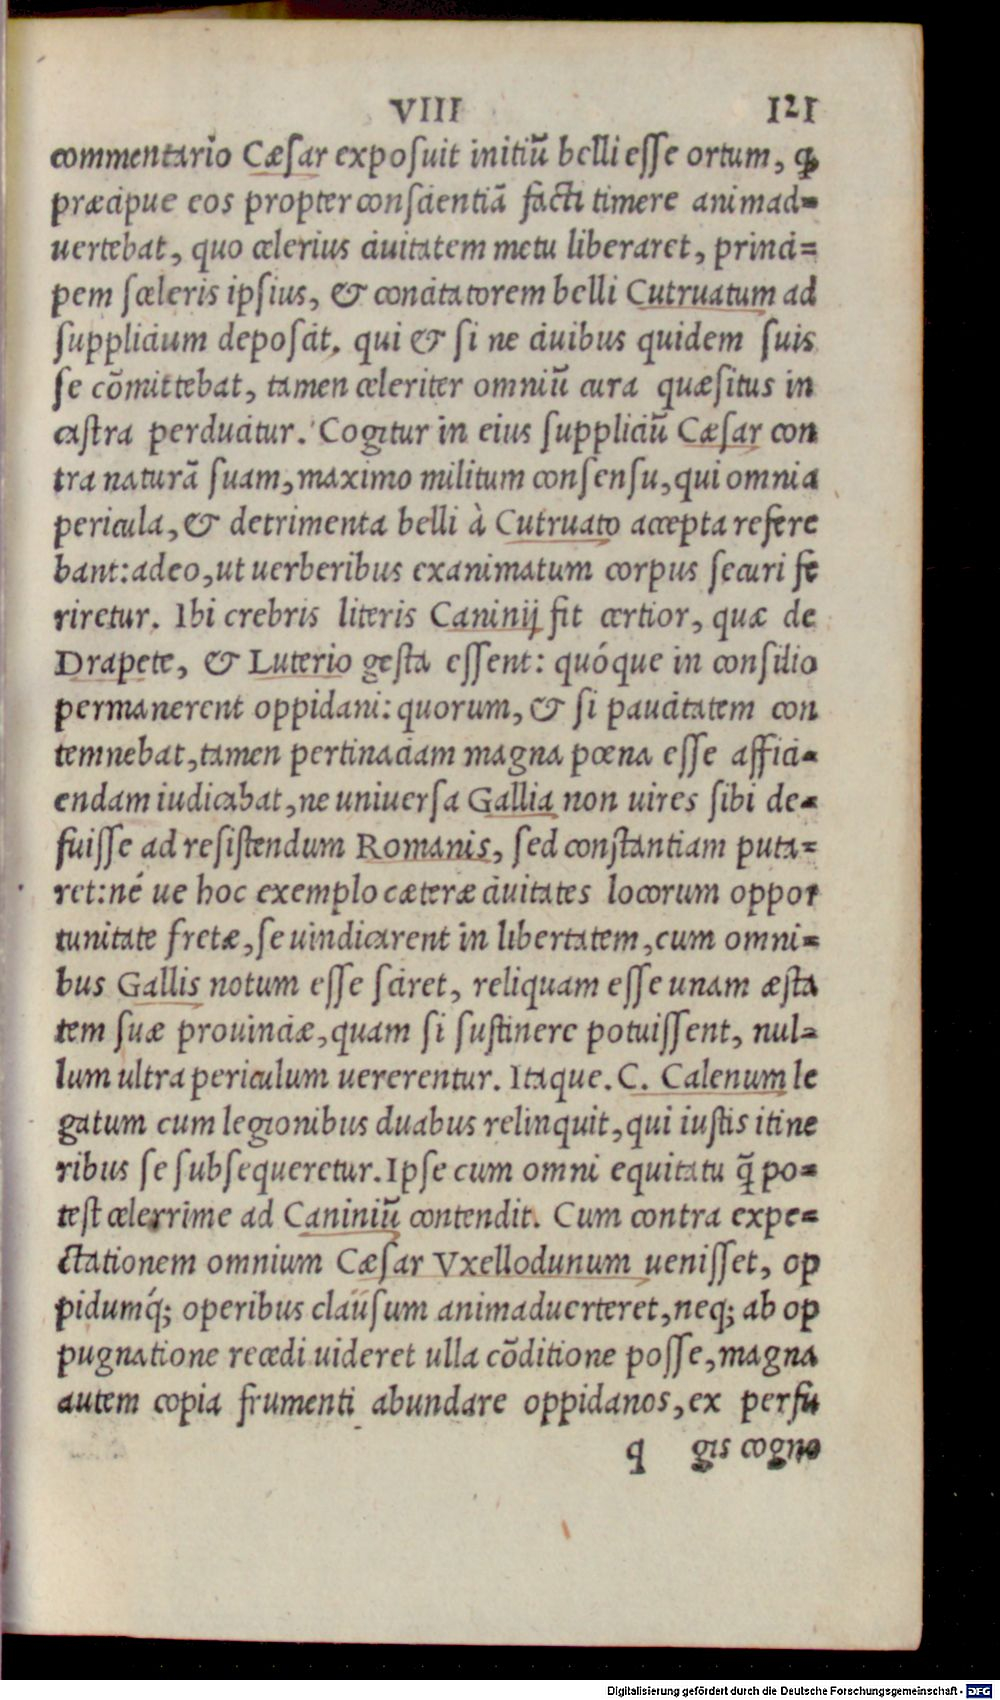 VIII 121
commentario Cæſar expoſuit initiū belli eſſe ortum, ꝙ
præcipue eos propter conſcientiā facti timere animad=
uertebat, quo celerius ciuitatem metu liberaret, princi=
pem ſceleris ipſius, & concitatorem belli Cutruatum ad
ſupplicium depoſcit. qui & ſi ne ciuibus quidem ſuis
ſe cōmittebat, tamen celeriter omniū cura quæſitus in
caſtra perducitur. Cogitur in eius ſuppliciū Cæſar con
tra naturā ſuam, maximo militum conſenſu, qui omnia
pericula, & detrimenta belli à Cutruato accepta refere
bant: adeo, ut uerberibus exanimatum corpus ſecuri fe
riretur. Ibi crebris literis Caninij fit certior, quæ de
Drapete, & Luterio geſta eſſent: quóque in conſilio
permanerent oppidani: quorum, & ſi paucitatem con
temnebat, tamen pertinaciam magna pœna eſſe affici=
endam iudicabat, ne uniuerſa Gallia non uires ſibi de=
fuiſſe ad reſiſtendum Romanis, ſed conſtantiam puta=
ret: né ue hoc exemplo cæteræ ciuitates locorum oppor
tunitate fretæ, ſe uindicarent in libertatem, cum omni=
bus Gallis notum eſſe ſciret, reliquam eſſe unam æſta
tem ſuæ prouinciæ, quam ſi ſuſtinere potuiſſent, nul=
lum ultra periculum uererentur. Itaque. C. Calenum le
gatum cum legionibus duabus relinquit, qui iuſtis itine
ribus ſe ſubſequeretur. Ipſe cum omni equitatu q̄ po=
teſt celerrime ad Caniniū contendit. Cum contra expe=
ctationem omnium Cæſar Vxellodunum ueniſſet, op
pidumq́; operibus clauſum animaduerteret, neq; ab op
pugnatione recedi uideret ulla cōditione poſſe, magna
autem copia frumenti abundare oppidanos, ex perfu
q gis cogno
Digitalisierung gefördert durch die Deutsche Forschungsgemeinschaft - DFG